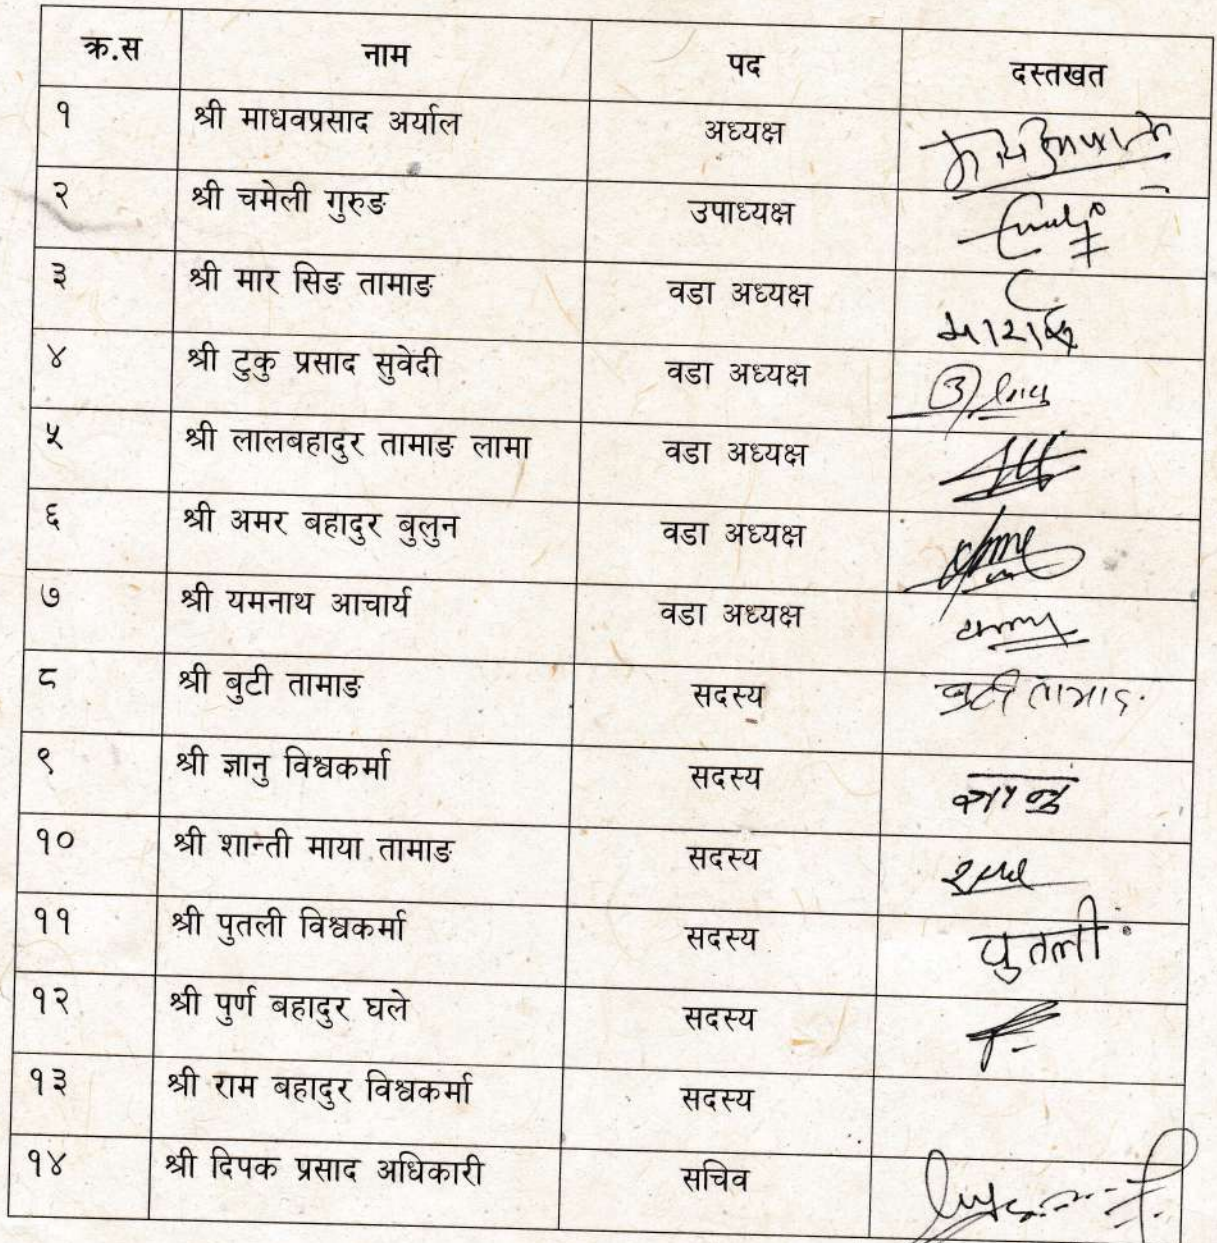 क्र.स नाम पद दस्तखत
१ श्री माधवप्रसाद अर्याल अध्यक्ष
२ श्री चमेली गुरुङ उपाध्यक्ष
३ श्री मार सिङ तामाङ वडा अध्यक्ष
४ श्री टुकु प्रसाद सुवेदी वडा अध्यक्ष
५ श्री लालबहादुर तामाङ लामा वडा अध्यक्ष
६ श्री अमर बहादुर बुलुन वडा अध्यक्ष
७ श्री यमनाथ आचार्य वडा अध्यक्ष
८ श्री बुटी तामाङ सदस्य बुटी तामाङ
९ श्री ज्ञानु विश्वकर्मा सदस्य
१० श्री शान्ती माया तामाङ सदस्य
११ श्री पुतली विश्वकर्मा सदस्य पुतली
१२ श्री पुर्ण बहादुर घले सदस्य
१३ श्री राम बहादुर विश्वकर्मा सदस्य
१४ श्री दिपक प्रसाद अधिकारी सचिव